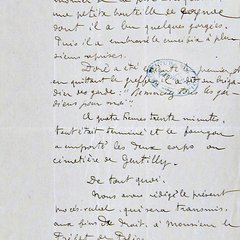 une petite bouteille de cognac
dont il a bu quelques gorgées.
Puis il a embrassé le crucifix à plu-
sieurs reprises.
Doré a été
en quittant le greffe, a dit au briga-
dier des gardes: "Remerciez les gar-
diens pour moi".
A quatre heures trente minutes,
tout était terminé et le fourgon
a emporté les deux corps au
cimetière de Gentilly.
De tout quoi,
Nous avons rédigé le présent
procès-verbal, qui sera transmis,
aux fins de droit, à Monsieur le
Préfet de Police.